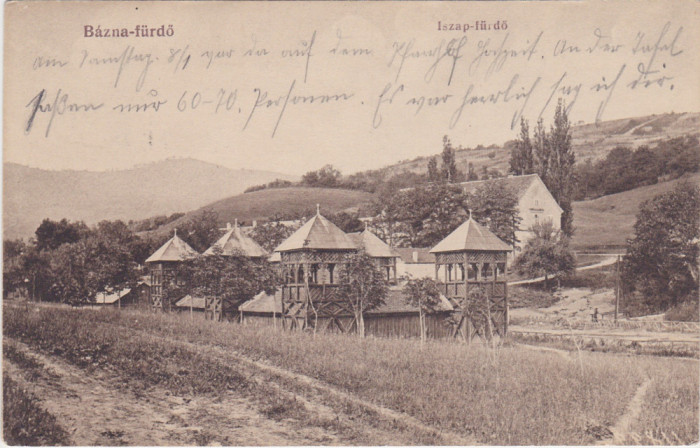 Bázna-fürdő
Iszap-fürdő
am Samstag 8/1 war da auf dem Pfarrhof Hochzeit. An der Tafel
saßen nur 60-70 Personen. Es war herrlich sag ich dir.